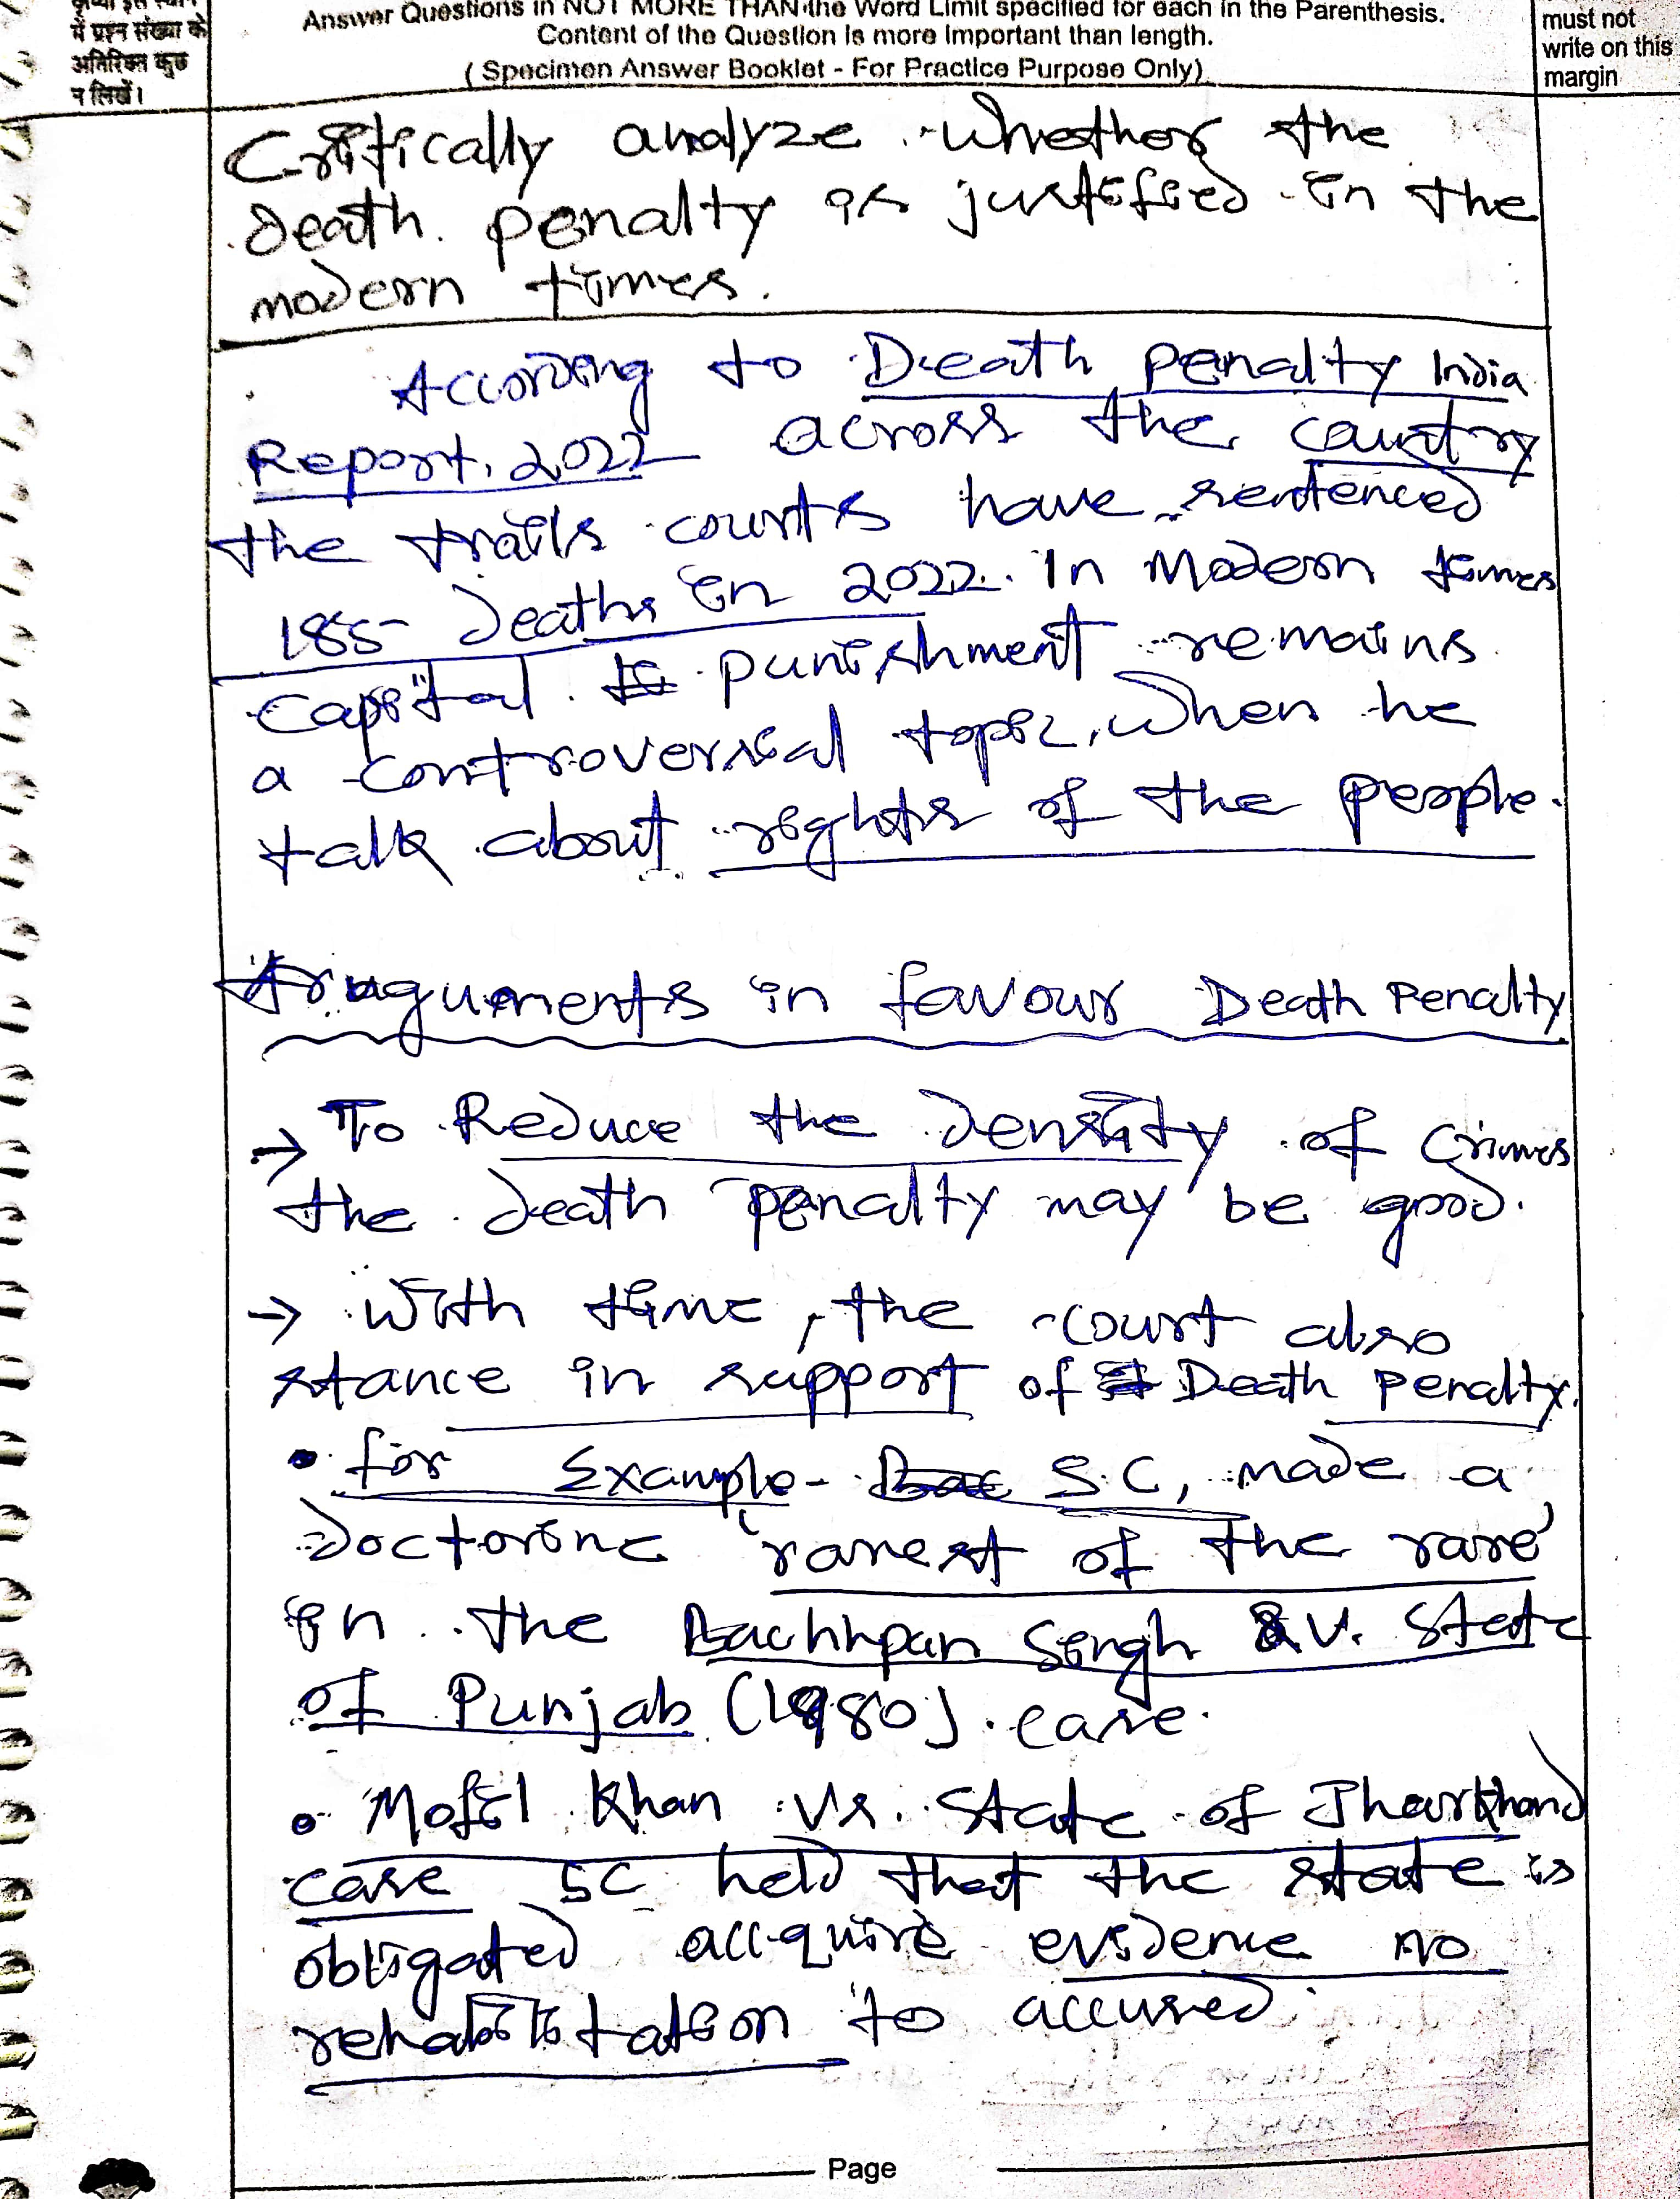 में प्रश्न संख्या के
अतिरिक्त कुछ
न लिखें।
Answer Questions in NOT MORE THAN the Word Limit specified for each in the Parenthesis.
Content of the Question is more important than length.
( Specimen Answer Booklet - For Practice Purpose Only)
must not
write on this
margin
Critically analyze whether the
death penalty is justified in the
modern times.
According to Death penalty India
Report, 2022 across the country
the trails courts have sentenced
185 deaths in 2022. In Modern times
capital punishment remains
a controversial topic, when he
talk about rights of the people.
Aruguments in favour Death Penalty
→ To Reduce the density of crimes
the death penalty may be good.
→ With time, the court also
stance in support of Death penalty.
• for Example - S.C, made a
doctorine 'rarest of the rare'
in the Bachhpan Singh V. State
of Punjab (1980) case.
• Mofil Khan Vs. State of Jharkhand
case SC held that the state is
obligated accquire evidence no
rehabilitation to accused.
Page